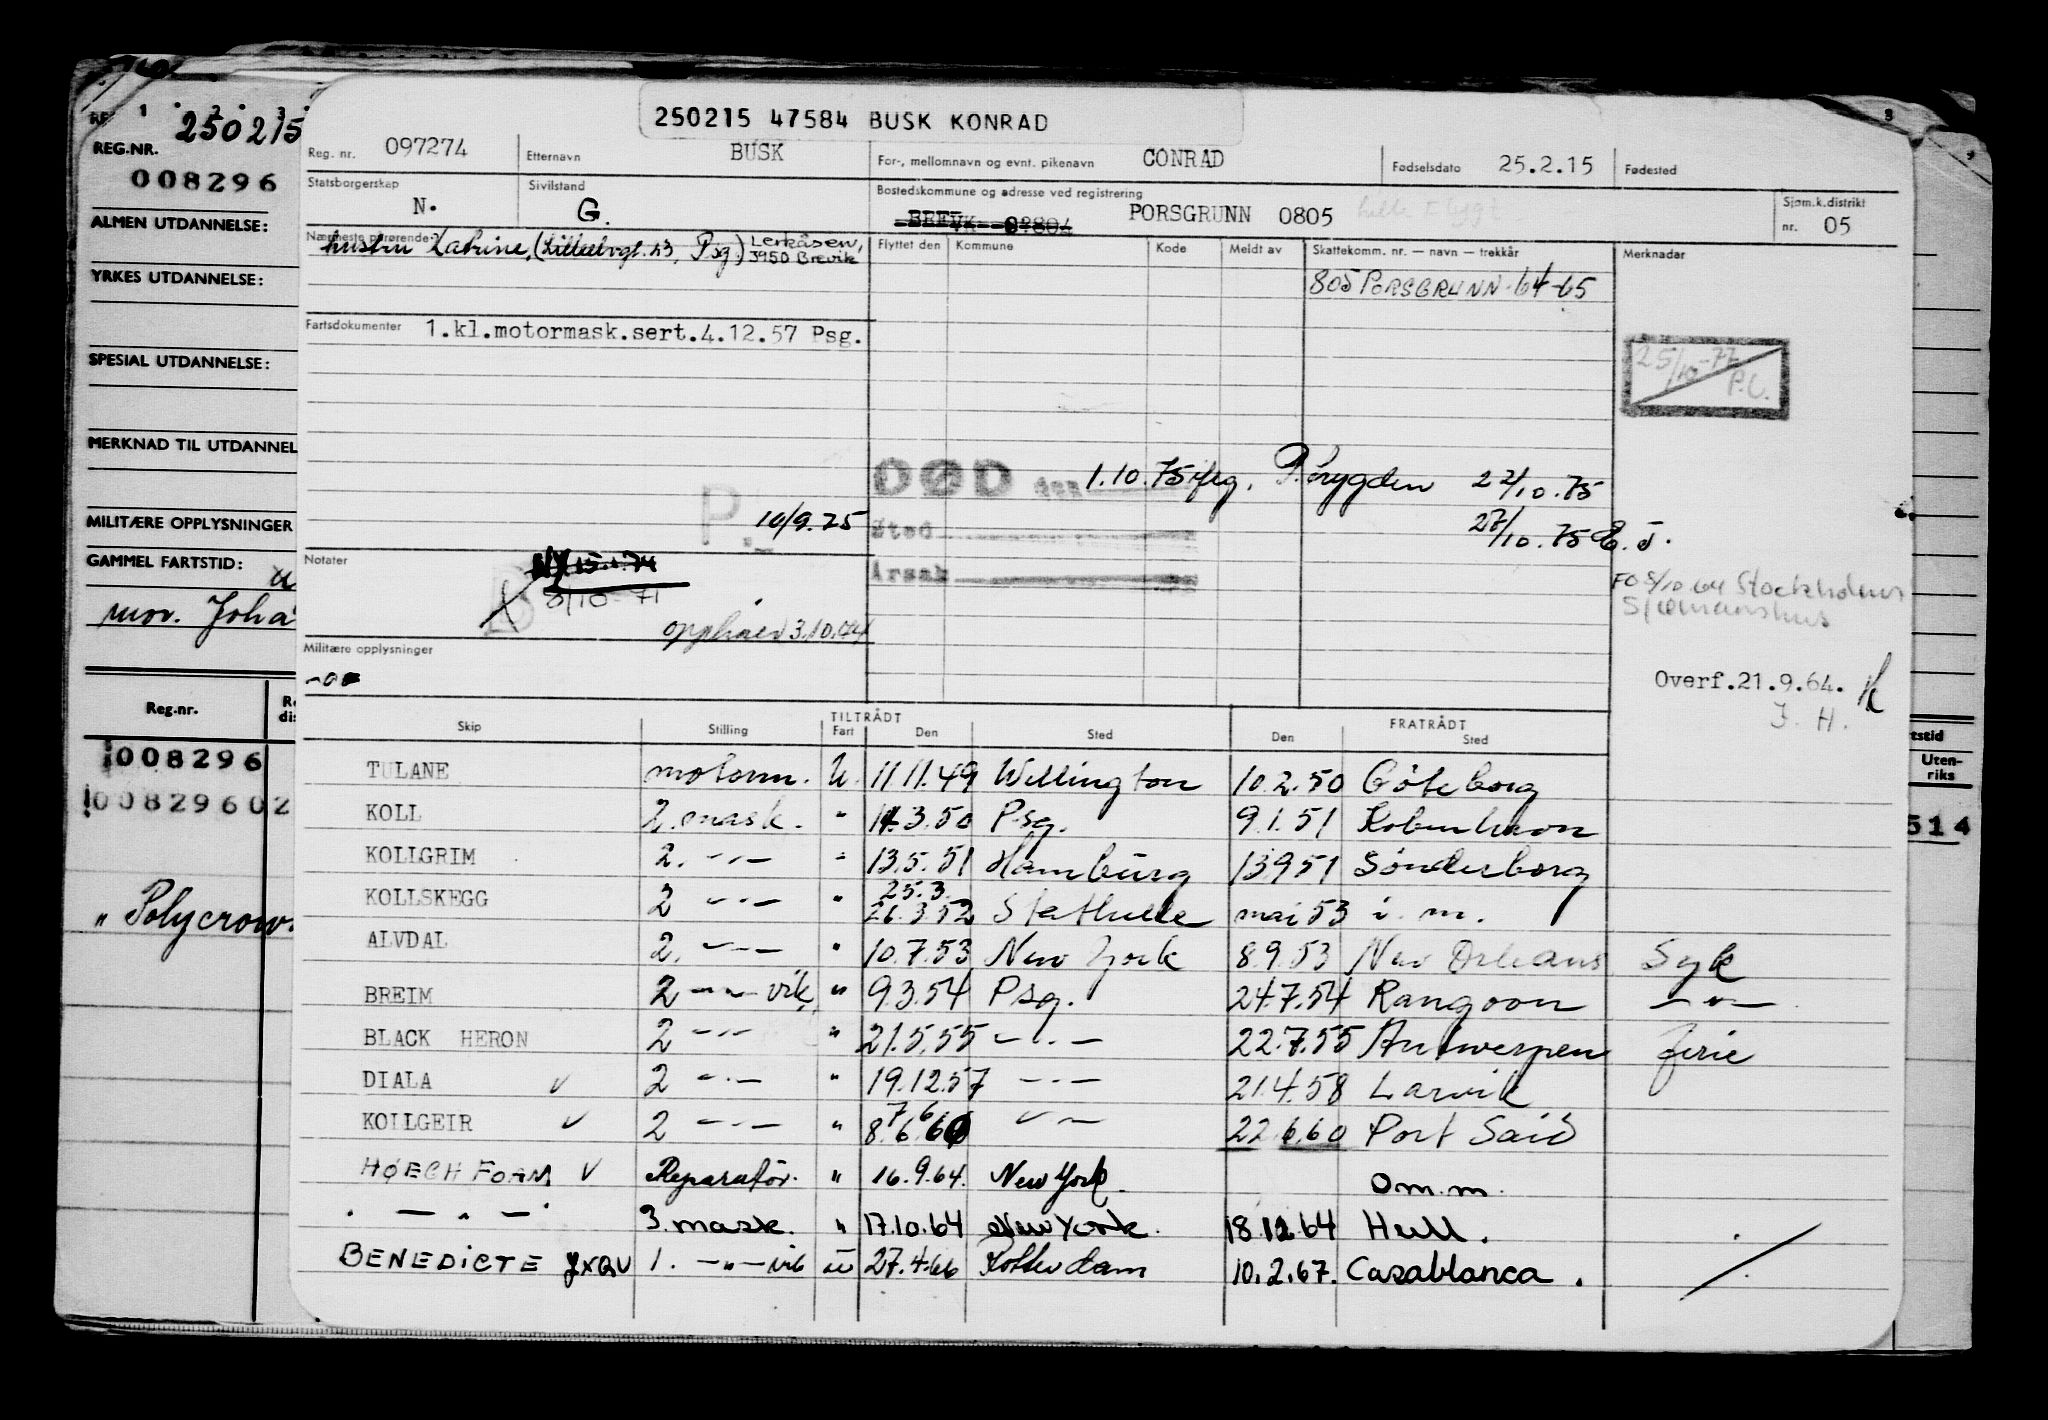 250215 47584 BUSK KONRAD
1 250215
REG.NR.
008296
ALMEN UTDANNELSE:
YRKES UTDANNELSE:
SPESIAL UTDANNELSE:
MERKNAD TIL UTDANNEL
MILITÆRE OPPLYSNINGER
GAMMEL FARTSTID:
mor. Joha
Reg.nr.
008296
00829602
" Polycrow.
Reg. nr. 097274 Etternavn BUSK For-, mellomnavn og evnt. pikenavn CONRAD Fødselsdato 25.2.15 Fødested
Statsborgerskap N. Sivilstand G. Bostedskommune og adresse ved registrering PORSGRUNN 0805 Sjøm.k.distrikt nr. 05
Nærmeste pårørende: hustru Katrine, Psg.) Lerkåsen, 3950 Brevik
Flyttet den Kommune Kode Meldt av Skattekomm. nr. — navn — trekkår Merknader
805 PORSGRUNN 64-65
Fartsdokumenter 1.kl.motormask.sert.4.12.57 Psg.
25/10-77 P.C.
DØD den 1.10.75 iflg. P.trygden 22/10.75
P. 10/9.75
Sted 27/10.75 E. J.
Årsak
Notater
8/10-71
opphøer 3.10.64
FO 5/10 64 Stockholms Sjømannshus
Militære opplysninger
Overf.21.9.64. K
J. H.
Skip Stilling TILTRÅDT Fart Den Sted FRATRÅDT Den Sted
TULANE motorm. U. 11 11.49 Wellington 10.2.50 Göteborg
KOLL 2. mask. " 14.3.50 Psg. 9.1.51 København
KOLLGRIM 2. -"- " 13.5.51 Hamburg 13951 Sønderborg
KOLLSKEGG 2 -"- " 25.3. 26.3.52 Stathelle mai 53 i. m.
ALVDAL 2. -"- " 10.7.53 New York 8.9.53 New Orleans Syk
BREIM 2 -"- vik. " 9.3.54 Psg. 24.7.54 Rangoon -"-
BLACK HERON 2 -"- " 21.5.55 -"- 22.7.55 Antwerpen ferie
DIALA V 2 -"- " 19.12.57 -"- 21.4.58 Larvik
KOLLGEIR V 2 -"- " 7.6 8.6.60 -"- 22.6.60 Port Said
HØEGH FOAM V Reparatør. " 16.9.64. New York. Om.m.
. - " - . 3. mask. " 17.10.64 New York. 18.12.64 Hull.
BENEDICTE JXQU 1. -"- vik 27.4.66 Rotterdam 10.2.67. Casablanca.
tstid
Uten-
riks
514